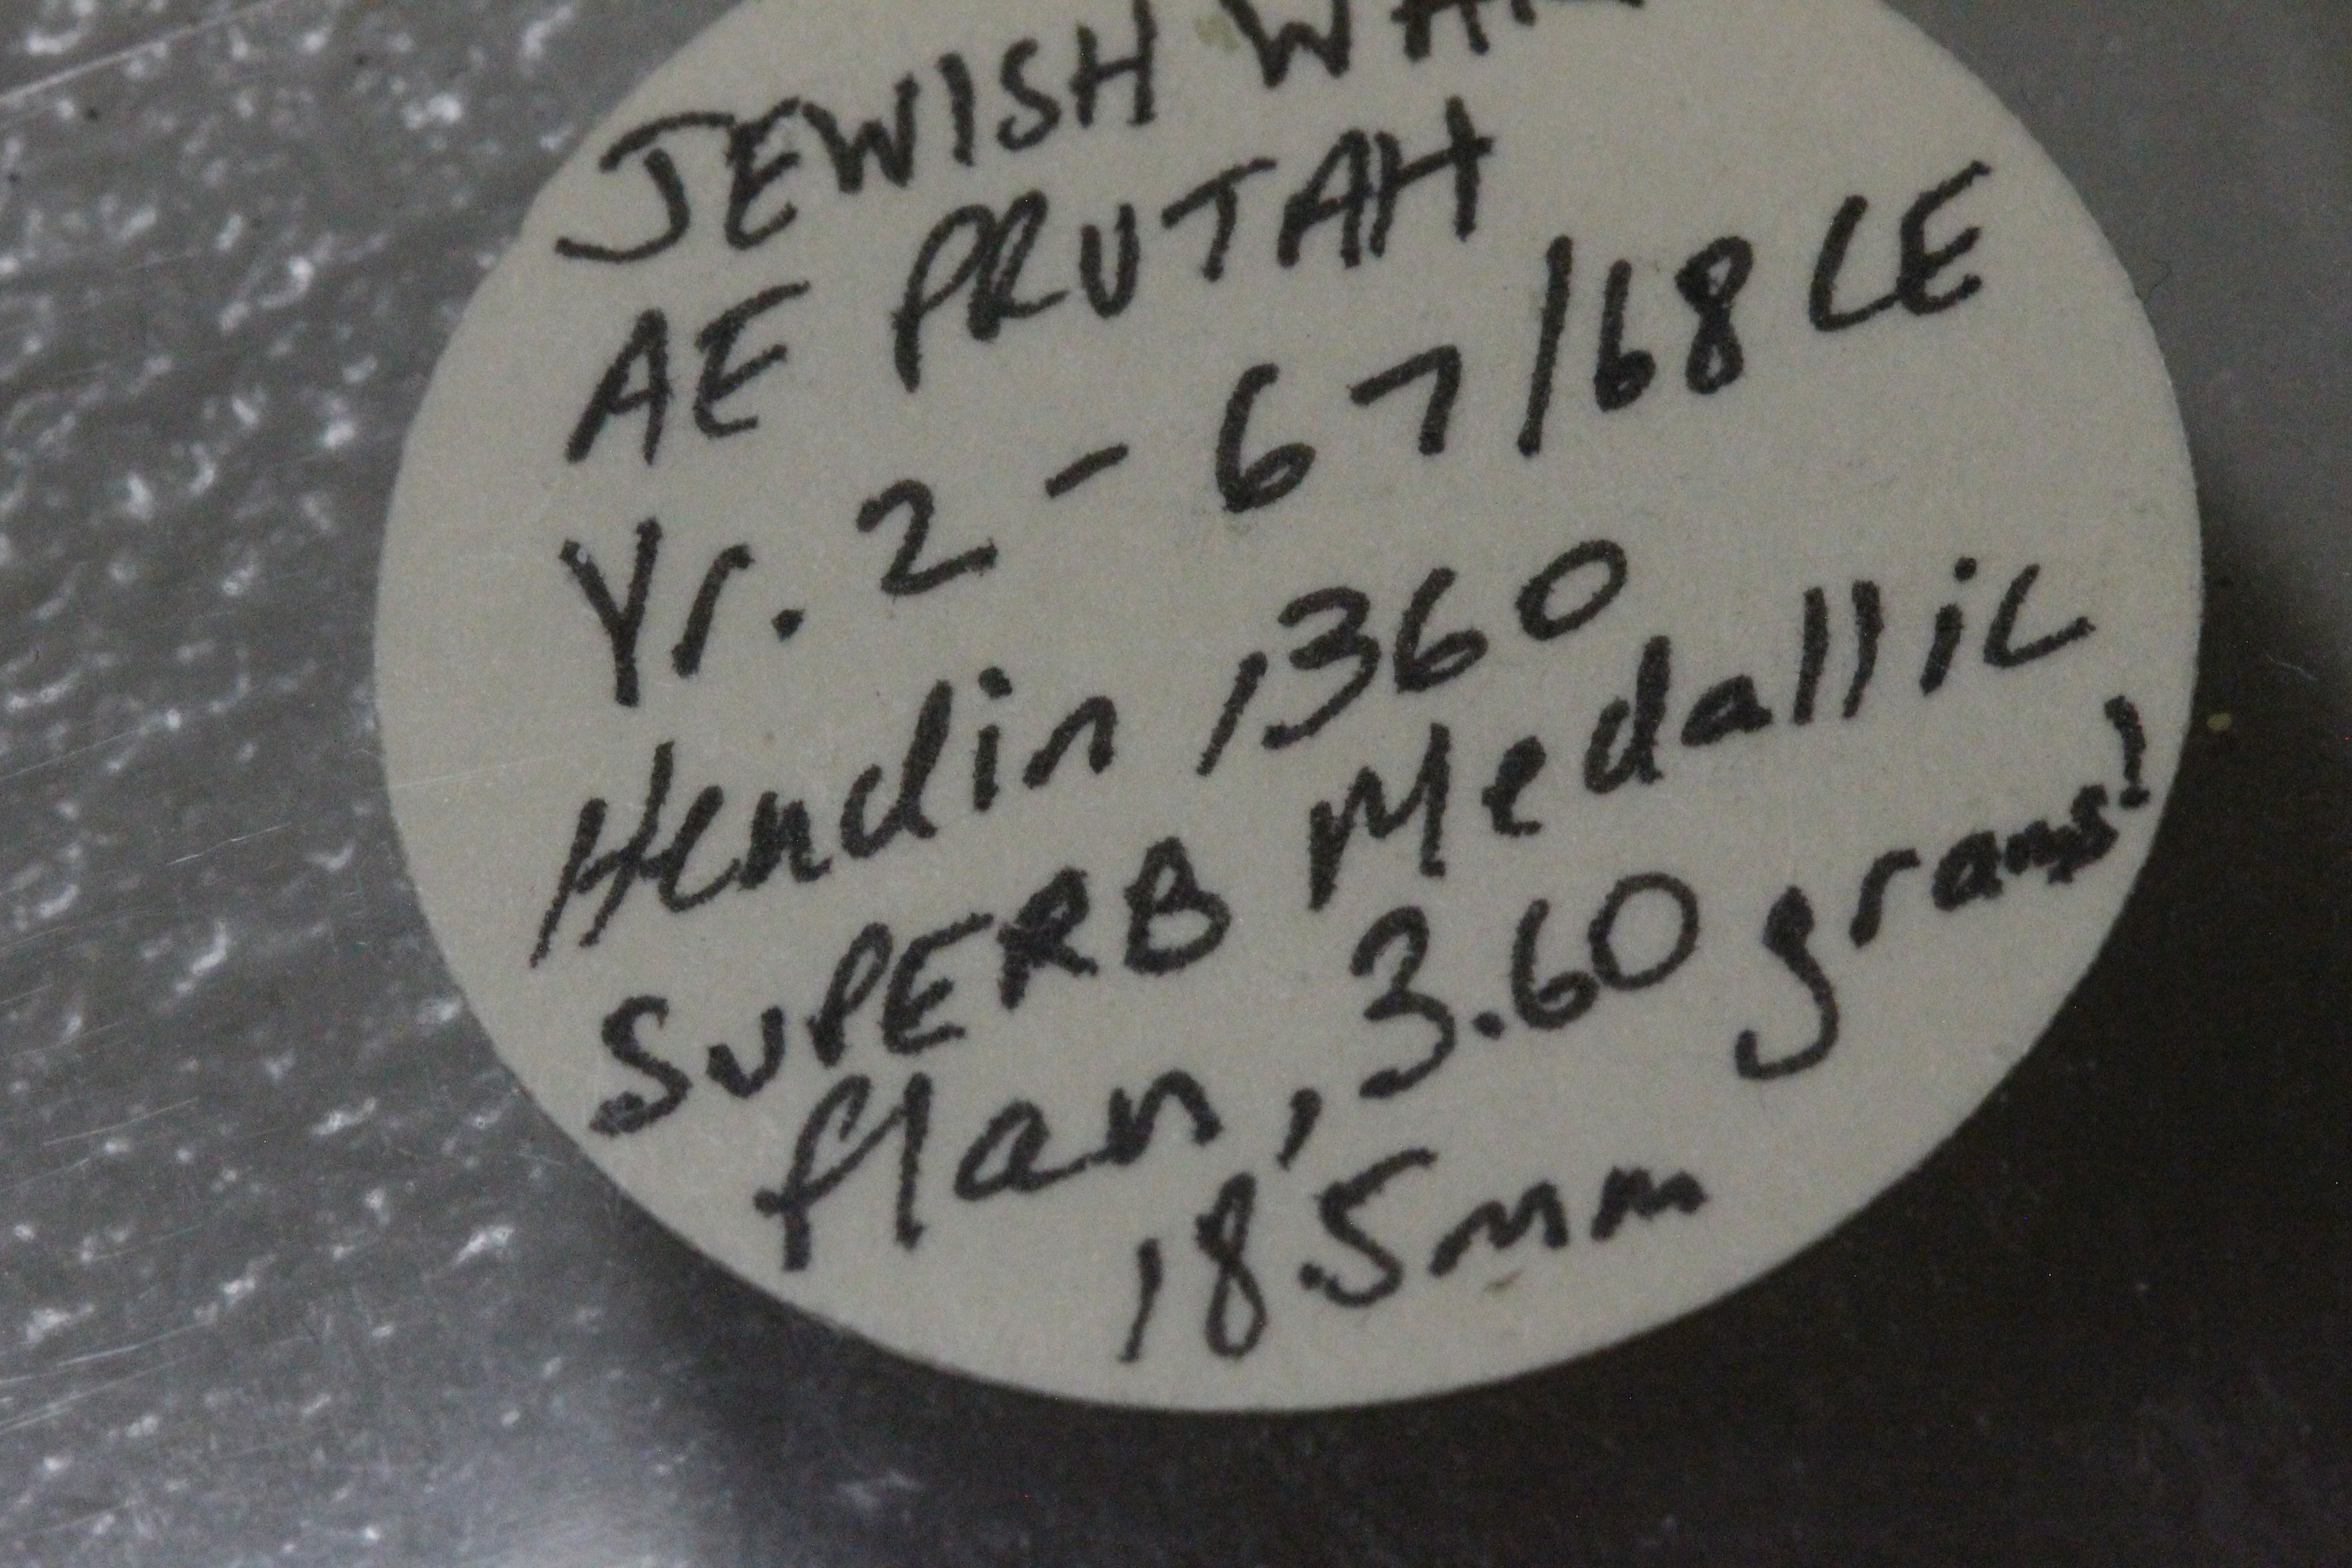 JEWISH WAR
AE PRUTAH
Yr. 2 - 67/68 CE
Hendin 1360
SUPERB Medallic
flan, 3.60 grams!
18.5mm